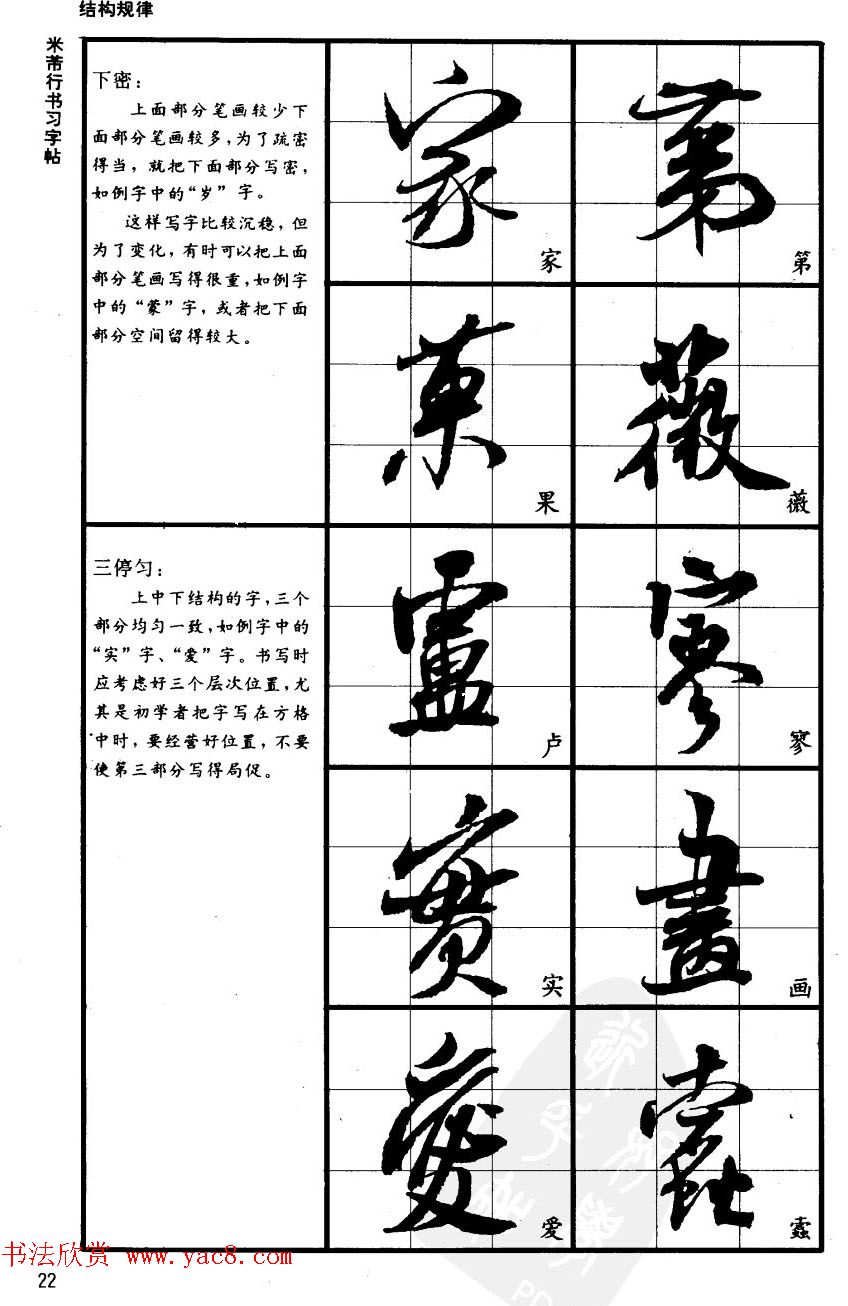 结构规律
米芾行书习字帖
下密：
上面部分笔画较少下
面部分笔画较多，为了疏密
得当，就把下面部分写密，
如例字中的“岁”字。
这样写字比较沉稳，但
为了变化，有时可以把上面
部分笔画写得很重，如例字
中的“蒙”字，或者把下面
部分空间留得较大。
家
第
家
第
菓
薇
果
薇
三停匀：
上中下结构的字，三个
部分均匀一致，如例字中的
“实”字、“爱”字。书写时
应考虑好三个层次位置，尤
其是初学者把字写在方格
中时，要经营好位置，不要
使第三部分写得局促。
盧
寥
卢
寥
實
畫
实
画
愛
蠹
爱
书法欣赏 www.yac8.com
22